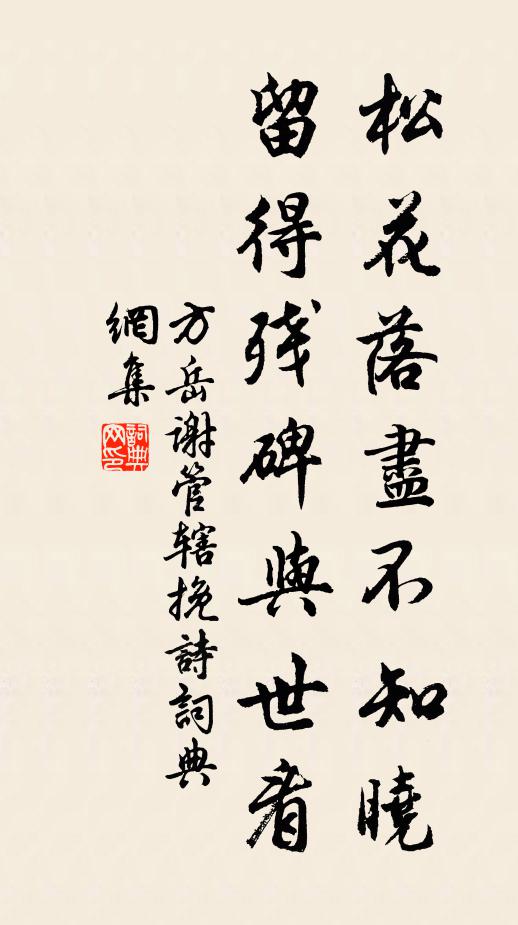 松花落盡不知曉
留得殘碑與世看
方岳謝管轄挽詩詞典
網集
詞典
网印